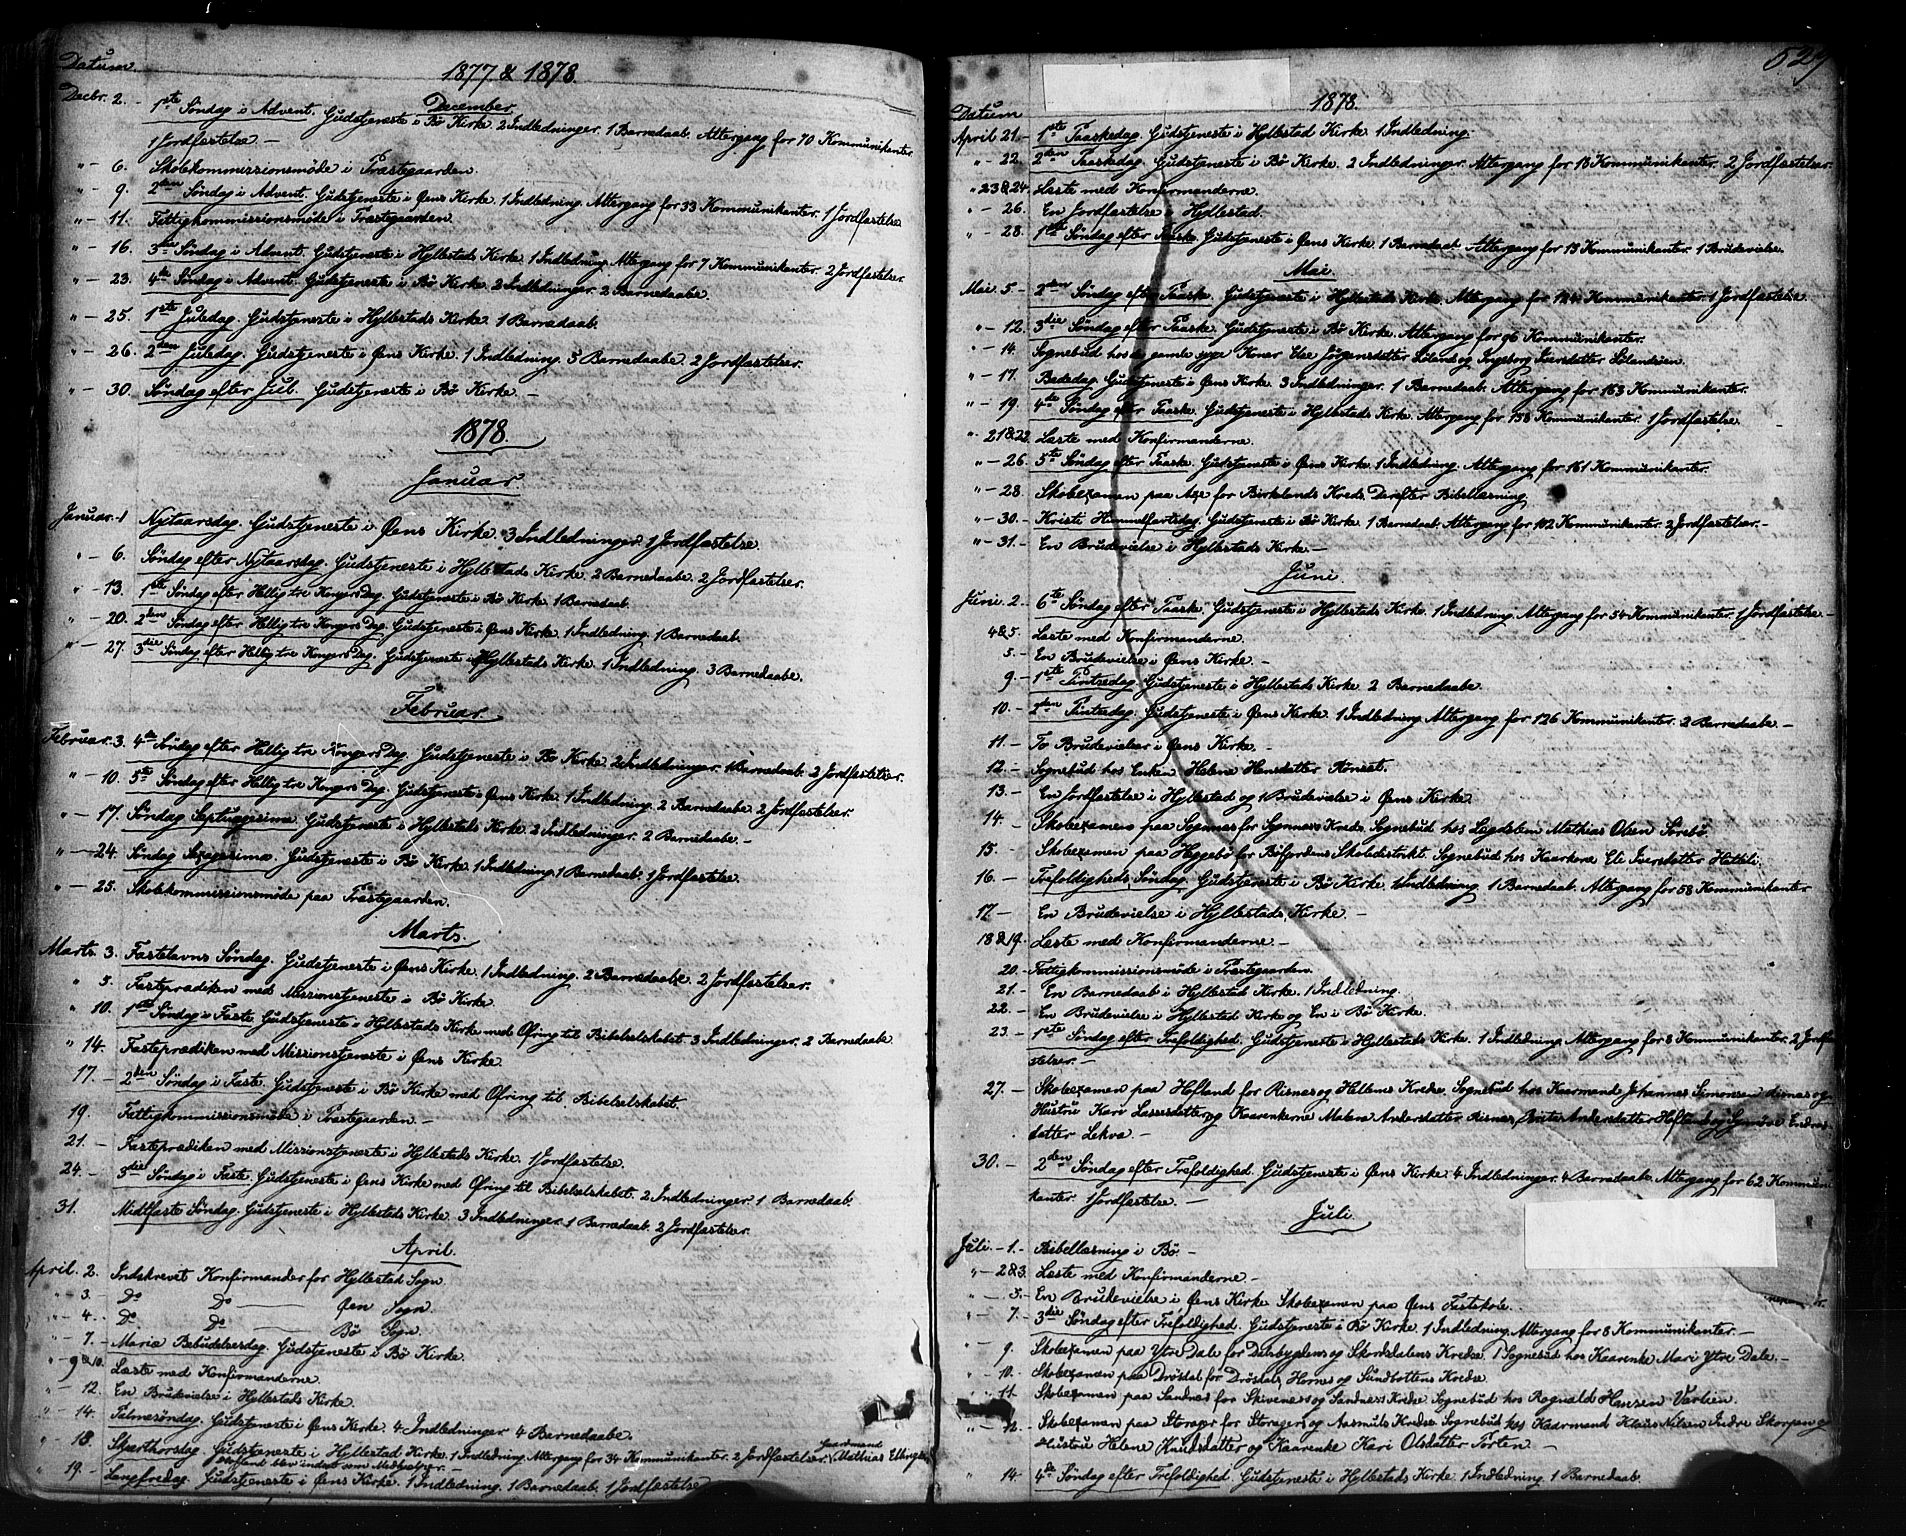 Datum.
1877 & 1878.
December
Decbr. 2. - 1ste Søndag i Advent. Gudstjeneste i Bø Kirke. 2 Indledninger. 1 Barnedaab. Altergang for 70 Kommunikanter.
1 Jordfæstelse. -
" - 6. Skolekommissionsmøde i Præstegaarden.
" - 9. 2den Søndag i Advent. Gudstjeneste i Øens Kirke. 1 Indledning. Altergang for 33 Kommunikanter. 1 Jordfæstelse
" - 11. Fattigkommissionsmøde i Præstegaarden.
" - 16. 3die Søndag i Advent. Gudstjeneste i Hyllestads Kirke. 1 Indledning. Altergang for 7 Kommunikanter. 2 Jordfæstelser.
" - 23. 4de Søndag i Advent. Gudstjeneste i Bø Kirke. 2 Indledninger. 2 Barnedaabe.
" - 25. 1ste Juledag. Gudstjeneste i Hyllestads Kirke. 1 Barnedaab.
" - 26. 2den Juledag. Gudstjeneste i Øens Kirke. 1 Indledning. 3 Barnedaabe. 2 Jordfæstelser.
" - 30. Søndag efter Jul. Gudstjeneste i Bø Kirke. -
1878.
Januar
Januar. 1 Nytaarsdag. Gudstjeneste i Øens Kirke. 3 Indledninger. 1 Jordfæstelse.
" - 6. Søndag efter Nytaarsdag. Gudstjeneste i Hyllestads Kirke. 2 Barnedaabe. 2 Jordfæstelser.
" - 13. 1ste Søndag efter Hellig tre Kongers Dag. Gudstjeneste i Bø Kirke. 1 Barnedaab.
" - 20. 2den Søndag efter Hellig tre Kongers Dag. Gudstjeneste i Øens Kirke. 1 Indledning. 1 Barnedaab.
" - 27. 3die Søndag efter Hellig tre Kongers Dag. Gudstjeneste i Hyllestads Kirke. 1 Indledning. 3 Barnedaabe.
Februar.
Februar. 3. 4de Søndag efter Hellig tre Kongers Dag. Gudstjeneste i Bø Kirke. 2 Indledninger. 1 Barnedaab. 2 Jordfæstelser.
" - 10. 5te Søndag efter Hellig tre Kongers Dag. Gudstjeneste i Øens Kirke. 1 Indledning. 2 Barnedaabe. 2 Jordfæstelser.
" - 17. Søndag Septuagesima. Gudstjeneste i Hyllestads Kirke. 2 Indledninger. 2 Barnedaabe. -
" - 24. Søndag Sexagesima. Gudstjeneste i Bø Kirke. 1 Indledning. 1 Barnedaab. 1 Jordfæstelse.
" - 25. Skolekommissionsmøde paa Præstegaarden.
Marts.
Marts. 3. Fastelavns Søndag. Gudstjeneste i Øens Kirke. 1 Indledning. 2 Barnedaabe. 2 Jordfæstelser.
" 5. Fasteprædiken med Missionstjeneste i Bø Kirke.
" 10. 1ste Søndag i Faste. Gudstjeneste i Hyllestads Kirke med Ofring til Bibelselskabet. 3 Indledninger. 2 Barnedaabe
" 14. Fasteprædiken med Missionstjeneste i Øens Kirke.
17. - 2den Søndag i Faste. Gudstjeneste i Bø Kirke med Ofring til Bibelselskabet.
19. Fattigkommissionsmøde i Præstegaarden. -
21. - Fasteprædiken med Missionstjeneste i Hyllestads Kirke. 1 Jordfæstelse.
24. - 3die Søndag i Faste. Gudstjeneste i Øens Kirke med Ofring til Bibelselskabet. 2 Indledninger. 1 Barnedaab.
31. Midfaste Søndag. Gudstjeneste i Hyllestads Kirke. 3 Indledninger. 1 Barnedaab. 2 Jordfæstelser.
April.
April. 2. Indskrevet Konfirmander for Hyllestad Sogn.
" - 3. - Do Do Øen Sogn.
" - 4. Do Do Bø Sogn.
" - 7. - Mariæ Bebudelsesdag. Gudstjeneste i Bø Kirke.
" - 9 & 10. Læste med Konfirmanderne.
" - 12. En Brudevielse i Hyllestads Kirke.
" - 14. Palmesøndag. Gudstjeneste i Øens Kirke. 4 Indledninger. 4 Barnedaabe.
" - 18. Skærthorsdag. Gudstjeneste i Hyllestad Kirke. 1 Indledning. Altergang for 34 Kommunikanter. 2 Jordfæstelser. Gaardmand Mathias
" 19. - Langfredag. Gudstjeneste i Øens Kirke. 1 Indledning. 1 Barnedaab. 1 Jordfæstelse
529
1878.
Datum
April 21. - 1ste Paaskedag. Gudstjeneste i Hyllestad Kirke. 1 Indledning.
" - 22. 2den Paaskedag. Gudstjeneste i Bø Kirke. 2 Indledninger. Altergang for 18 Kommunikanter. 2 Jordfæstelser.
" 23 & 24. Læste med Konfirmanderne.
" - 26. En Jordfæstelse i Hyllestad.
" - 28. 1ste Søndag efter Paaske. Gudstjeneste i Øens Kirke. 1 Barnedaab. Altergang for 13 Kommunikanter. 1 Brudevielse.
Mai.
Mai. 5. - 2den Søndag efter Paaske. Gudstjeneste i Hyllestads Kirke. Altergang for 124 Kommunikanter. 1 Jordfæstelse.
" - 12. 3die Søndag efter Paaske. Gudstjeneste i Bø Kirke. Altergang for 96 Kommunikanter.
" - 14. Sognebud hos gamle syge Koner Else Jørgensdatter Søland og Ingeborg Iversdatter
" - 17. Bededag. Gudstjeneste i Øens Kirke. 3 Indledninger. 1 Barnedaab. Altergang for 163 Kommunikanter.
" - 19. 4de Søndag efter Paaske. Gudstjeneste i Hyllestads Kirke. Altergang for 158 Kommunikanter. 1 Jordfæstelse.
" 21 & 22. Læste med Konfirmanderne.
" - 26. 5te Søndag efter Paaske. Gudstjeneste i Øens Kirke. 1 Indledning. Altergang for 161 Kommunikanter.
" - 28. Skolexamen paa Aae for Birkelands Kreds. Derefter Bibellæsning.
" - 30. - Kristi Himmelfartsdag. Gudstjeneste i Bø Kirke. 1 Barnedaab. Altergang for 102 Kommunikanter. 2 Jordfæstelser. -
" - 31. - En Brudevielse i Hyllestads Kirke. -
Juni.
Juni. 2. - 6te Søndag efter Paaske. Gudstjeneste i Hyllestads Kirke. 1 Indledning. Altergang for 54 Kommunikanter. 1 Jordfæstelse
4 & 5. Læste med Konfirmanderne.
5 - En Brudevielse i Øens Kirke. -
9 - 1ste Pintsedag. Gudstjeneste i Hyllestads Kirke. 2 Barnedaabe.
10. - 2den Pintsedag. Gudstjeneste i Øens Kirke. 1 Indledning. Altergang for 126 Kommunikanter. 2 Barnedaabe. -
11. - To Brudevielser i Øens Kirke. -
12. - Sognebud hos Enken Helene Hansdatter Rønset.
13. - En Jordfæstelse i Hyllestad og 1 Brudevielse i Øens Kirke.
14. - Skolexamen paa Sognnæs for Sognnæs Kreds. Sognebud hos Lægdslem Mathias Olsen Sørebø.
15. - Skolexamen paa Heggebø for Bøfjordens Skoledistrikt. Sognebud hos Kaarkone Eli Iversdatter Hatteli.
16. - Trefoldigheds Søndag. Gudstjeneste i Bø Kirke. 1 Indledning. 1 Barnedaab. Altergang for 58 Kommunikanter
17. - En Brudevielse i Hyllestads Kirke. -
18 & 19. - Læste med Konfirmanderne. -
20. - Fattigkommissionsmøde i Præstegaarden.
21. - En Barnedaab i Hyllestad Kirke. 1 Indledning.
22. - En Brudevielse i Hyllestad Kirke og En i Bø Kirke.
23. - 1ste Søndag efter Trefoldighed. Gudstjeneste i Hyllestads Kirke. 1 Indledning. Altergang for 8 Kommunikanter. 2 Jordfæ
stelser. -
27. - Skolexamen paa Hofland for Risnæs og Hellens Kredse. Sognebud hos Kaarmand Johannes Simonsen Risnæs og
Hustru Kari Lassesdatter og Kaarenkerne Malena Andersdatter Risnæs, Brite Andersdatter Hofland og Synnøve Endres
datter Lekva. -
30. - 2den Søndag efter Trefoldighed. Gudstjeneste i Øens Kirke. 4 Indledninger. 4 Barnedaabe. Altergang for 62 Kommuni
kanter. 1 Jordfæstelse. -
Juli.
Juli. - 1. - Bibellæsning i Bø. -
" - 2 & 3. Læste med Konfirmanderne. -
" - 5. - En Brudevielse i Øens Kirke. Skolexamen paa Øens Fastskole.
" - 7. 3die Søndag efter Trefoldighed. Gudstjeneste i Bø Kirke. 1 Indledning. Altergang for 8 Kommunikanter. -
" - 9. Skolexamen paa Ytre Dale for Dalsbygdens og Skordalens Kredse. 1 Sognebud hos Kaarenke Mari Ytre Dale. -
" - 10. Skolexamen paa Drösdal for Drösdals, Hornes og Sundbottens Kredse.
" - 11. Skolexamen paa Sandnæs for Skivenes og Sandnæs Kredse. Sognebud hos Rognald Hansen Varlien.
" - 12. Skolexamen paa Storager for Storagers og Aasmuls Kredse. Sognebud hos Kaarmand Klaus Nilsen Indre Skorpen og
Hustru Helene Knudsdatter og Kaarenke Kari Olsdatter Porten. -
" 14. 4de Søndag efter Trefoldighed. Gudstjeneste i Hyllestads Kirke. 1 Indledning. 1 Barnedaab.